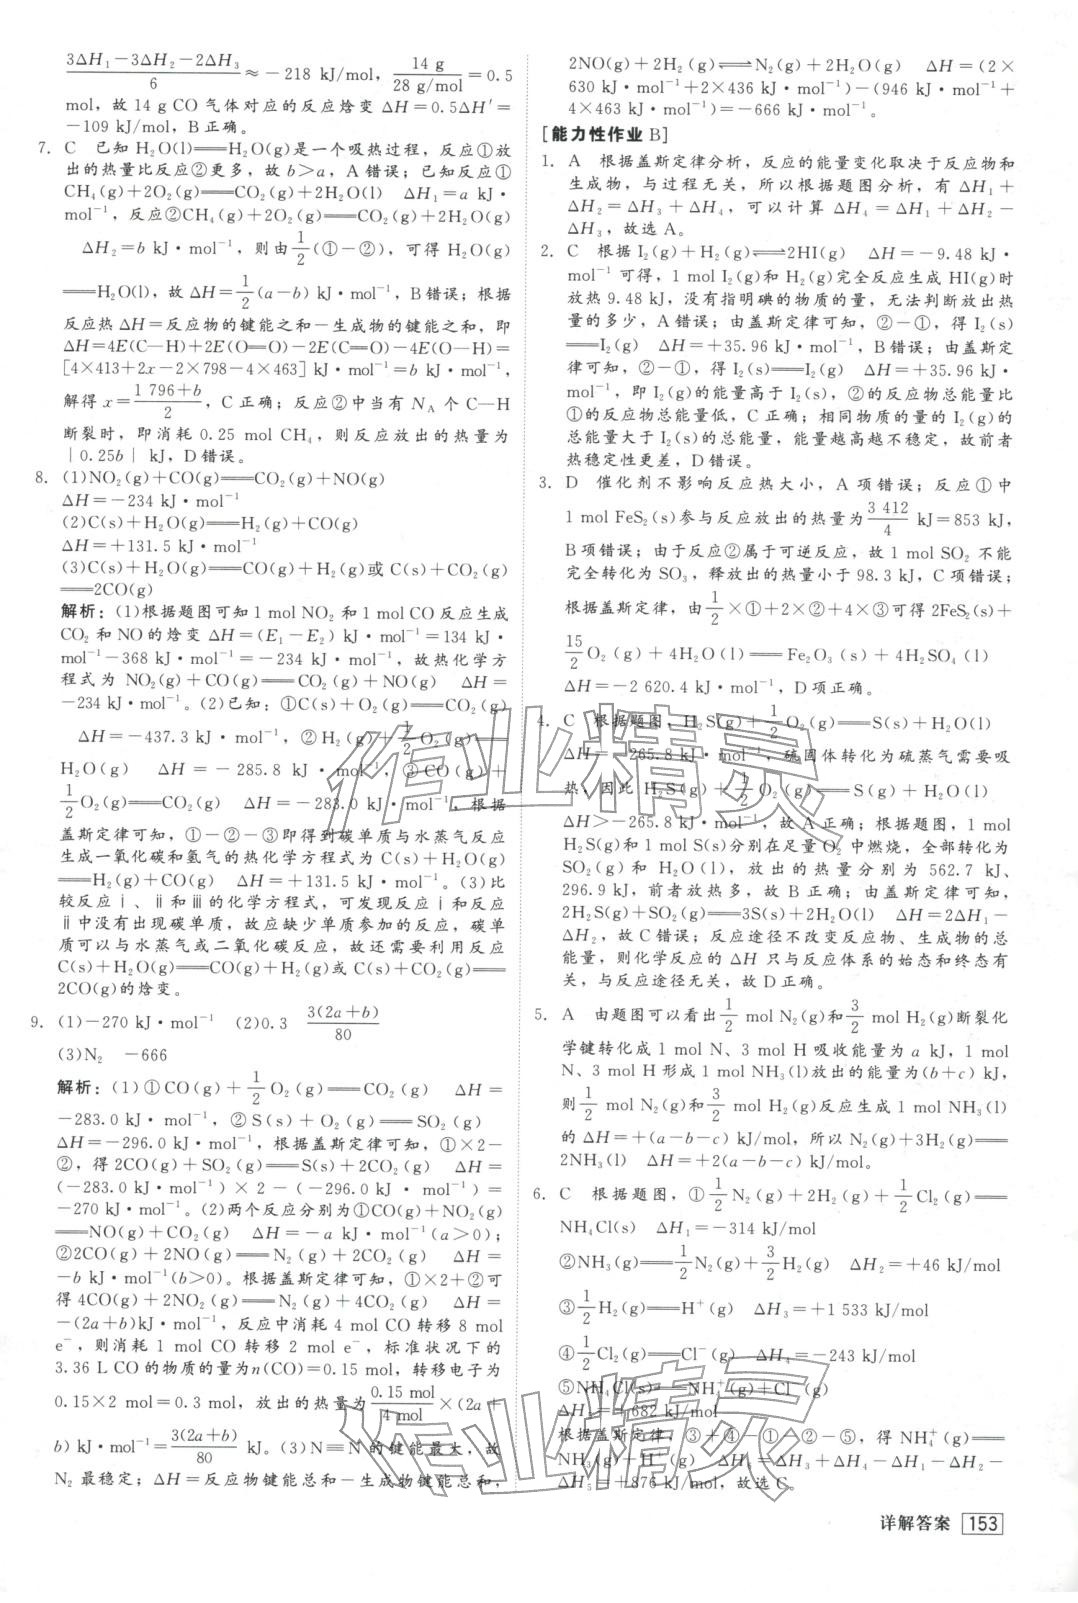 $\frac{3\Delta H_1-3\Delta H_2-2\Delta H_3}{6}$≈－218 kJ/mol，$\frac{14\ g}{28\ g/mol}$＝0.5
mol，故 14 g CO 气体对应的反应焓变 ΔH＝0.5ΔH′＝
－109 kJ/mol，B正确。
7. C 已知 H₂O(l)══H₂O(g)是一个吸热过程，反应①放
出的热量比反应②更多，故 b＞a，A错误；已知反应①
CH₄(g)＋2O₂(g)══CO₂(g)＋2H₂O(l) ΔH₁＝a kJ·
mol⁻¹，反应②CH₄(g)＋2O₂(g)══CO₂(g)＋2H₂O(g)
ΔH₂＝b kJ·mol⁻¹，则由$\frac{1}{2}$(①－②)，可得 H₂O(g)
══H₂O(l)，故 ΔH＝$\frac{1}{2}$(a－b) kJ·mol⁻¹，B错误；根据
反应热 ΔH＝反应物的键能之和－生成物的键能之和，即
ΔH＝4E(C—H)＋2E(O═O)－2E(C═O)－4E(O—H)＝
[4×413＋2x－2×798－4×463] kJ·mol⁻¹＝b kJ·mol⁻¹，
解得 x＝$\frac{1\ 796+b}{2}$，C正确；反应②中当有 N_A 个 C—H
断裂时，即消耗 0.25 mol CH₄，则反应放出的热量为
|0.25b| kJ，D错误。
8. (1)NO₂(g)＋CO(g)══CO₂(g)＋NO(g)
ΔH＝－234 kJ·mol⁻¹
(2)C(s)＋H₂O(g)══H₂(g)＋CO(g)
ΔH＝＋131.5 kJ·mol⁻¹
(3)C(s)＋H₂O(g)══CO(g)＋H₂(g)或 C(s)＋CO₂(g)
══2CO(g)
解析：(1)根据题图可知 1 mol NO₂ 和 1 mol CO 反应生成
CO₂ 和 NO 的焓变 ΔH＝(E₁－E₂) kJ·mol⁻¹＝134 kJ·
mol⁻¹－368 kJ·mol⁻¹＝－234 kJ·mol⁻¹，故热化学方
程式为 NO₂(g)＋CO(g)══CO₂(g)＋NO(g) ΔH＝
－234 kJ·mol⁻¹。(2)已知：①C(s)＋O₂(g)══CO₂(g)
ΔH＝－437.3 kJ·mol⁻¹，②H₂(g)＋$\frac{1}{2}$O₂(g)══
H₂O(g) ΔH＝－285.8 kJ·mol⁻¹，③CO(g)＋
$\frac{1}{2}$O₂(g)══CO₂(g) ΔH＝－283.0 kJ·mol⁻¹，根据
盖斯定律可知，①－②－③即得到碳单质与水蒸气反应
生成一氧化碳和氢气的热化学方程式为 C(s)＋H₂O(g)
══H₂(g)＋CO(g) ΔH＝＋131.5 kJ·mol⁻¹。(3)比
较反应ⅰ、ⅱ和ⅲ的化学方程式，可发现反应ⅰ和反应
ⅱ中没有出现碳单质，故应缺少单质参加的反应，碳单
质可以与水蒸气或二氧化碳反应，故还需要利用反应
C(s)＋H₂O(g)══CO(g)＋H₂(g)或 C(s)＋CO₂(g)══
2CO(g)的焓变。
9. (1)－270 kJ·mol⁻¹ (2)0.3 $\frac{3(2a+b)}{80}$
(3)N₂ －666
解析：(1)①CO(g)＋$\frac{1}{2}$O₂(g)══CO₂(g) ΔH＝
－283.0 kJ·mol⁻¹，②S(s)＋O₂(g)══SO₂(g)
ΔH＝－296.0 kJ·mol⁻¹，根据盖斯定律可知，①×2－
②，得 2CO(g)＋SO₂(g)══S(s)＋2CO₂(g) ΔH＝
(－283.0 kJ·mol⁻¹)×2－(－296.0 kJ·mol⁻¹)＝
－270 kJ·mol⁻¹。(2)两个反应分别为①CO(g)＋NO₂(g)
══NO(g)＋CO₂(g) ΔH＝－a kJ·mol⁻¹(a＞0)；
②2CO(g)＋2NO(g)══N₂(g)＋2CO₂(g) ΔH＝
－b kJ·mol⁻¹(b＞0)。根据盖斯定律可知，①×2＋②可
得 4CO(g)＋2NO₂(g)══N₂(g)＋4CO₂(g) ΔH＝
－(2a＋b)kJ·mol⁻¹，反应中消耗 4 mol CO 转移 8 mol
e⁻，则消耗 1 mol CO 转移 2 mol e⁻，标准状况下的
3.36 L CO 的物质的量为n(CO)＝0.15 mol，转移电子为
0.15×2 mol＝0.3 mol，放出的热量为$\frac{0.15\ mol}{4\ mol}$×(2a＋
b) kJ·mol⁻¹＝$\frac{3(2a+b)}{80}$ kJ。(3)N≡N 的键能最大，故
N₂ 最稳定；ΔH＝反应物键能总和－生成物键能总和，
2NO(g)＋2H₂(g)⇌N₂(g)＋2H₂O(g) ΔH＝(2×
630 kJ·mol⁻¹＋2×436 kJ·mol⁻¹)－(946 kJ·mol⁻¹＋
4×463 kJ·mol⁻¹)＝－666 kJ·mol⁻¹。
[能力性作业 B]
1. A 根据盖斯定律分析，反应的能量变化取决于反应物和
生成物，与过程无关，所以根据题图分析，有 ΔH₁＋
ΔH₂＝ΔH₃＋ΔH₄，可以计算 ΔH₄＝ΔH₁＋ΔH₂－
ΔH₃，故选 A。
2. C 根据 I₂(g)＋H₂(g)⇌2HI(g) ΔH＝－9.48 kJ·
mol⁻¹ 可得，1 mol I₂(g)和 H₂(g)完全反应生成 HI(g)时
放热 9.48 kJ，没有指明碘的物质的量，无法判断放出热
量的多少，A错误；由盖斯定律可知，②－①，得 I₂(s)
══I₂(g) ΔH＝＋35.96 kJ·mol⁻¹，B错误；由盖斯定
律可知，②－①，得 I₂(s)══I₂(g) ΔH＝＋35.96 kJ·
mol⁻¹，即 I₂(g)的能量高于 I₂(s)，②的反应物总能量比
①的反应物总能量低，C正确；相同物质的量的 I₂(g)的
总能量大于 I₂(s)的总能量，能量越高越不稳定，故前者
热稳定性更差，D错误。
3. D 催化剂不影响反应热大小，A 项错误；反应①中
1 mol FeS₂(s)参与反应放出的热量为$\frac{3\ 412}{4}$ kJ＝853 kJ，
B项错误；由于反应②属于可逆反应，故 1 mol SO₂ 不能
完全转化为 SO₃，释放出的热量小于 98.3 kJ，C项错误；
根据盖斯定律，由$\frac{1}{2}$×①＋2×②＋4×③可得 2FeS₂(s)＋
$\frac{15}{2}$O₂(g)＋4H₂O(l)══Fe₂O₃(s)＋4H₂SO₄(l)
ΔH＝－2 620.4 kJ/mol，D项正确。
4. C 根据题图，H₂S(g)＋$\frac{1}{2}$O₂(g)══S(s)＋H₂O(l)
ΔH＝－265.8 kJ·mol⁻¹，硫固体转化为硫蒸气需要吸
热，因此 H₂S(g)＋$\frac{1}{2}$O₂(g)══S(g)＋H₂O(l)
ΔH＞－265.8 kJ·mol⁻¹，故 A 正确；根据题图，1 mol
H₂S(g)和 1 mol S(s)分别在足量 O₂ 中燃烧，全部转化为
SO₂(g)和 H₂O(l)，放出的热量分别为 562.7 kJ、
296.9 kJ，前者放热多，故 B正确；由盖斯定律可知，
2H₂S(g)＋SO₂(g)══3S(s)＋2H₂O(l) ΔH＝2ΔH₁－
ΔH₂，故C错误；反应途径不改变反应物、生成物的总
能量，则化学反应的 ΔH 只与反应体系的始态和终态有
关，与反应途径无关，故 D正确。
5. A 由题图可以看出$\frac{1}{2}$ mol N₂(g)和$\frac{3}{2}$ mol H₂(g)断裂化
学键转化成 1 mol N、3 mol H 吸收能量为 a kJ，1 mol
N、3 mol H 形成 1 mol NH₃(l)放出的能量为(b＋c) kJ，
则$\frac{1}{2}$ mol N₂(g)和$\frac{3}{2}$ mol H₂(g)反应生成 1 mol NH₃(l)
的 ΔH＝＋(a－b－c) kJ/mol，所以 N₂(g)＋3H₂(g)══
2NH₃(l) ΔH＝＋2(a－b－c) kJ/mol。
6. C 根据题图，①$\frac{1}{2}$N₂(g)＋2H₂(g)＋$\frac{1}{2}$Cl₂(g)══
NH₄Cl(s) ΔH₁＝－314 kJ/mol
②NH₃(g)══$\frac{1}{2}$N₂(g)＋$\frac{3}{2}$H₂(g) ΔH₂＝＋46 kJ/mol
③$\frac{1}{2}$H₂(g)══H⁺(g) ΔH₃＝＋1 533 kJ/mol
④$\frac{1}{2}$Cl₂(g)══Cl⁻(g) ΔH₄＝－243 kJ/mol
⑤NH₄Cl(s)══NH₄⁺(g)＋Cl⁻(g)
ΔH₅＝＋682 kJ/mol
根据盖斯定律，③＋④－①－②－⑤，得 NH₄⁺(g)══
NH₃(g)＋H⁺(g) ΔH＝ΔH₃＋ΔH₄－ΔH₁－ΔH₂－
ΔH₅＝＋876 kJ/mol，故选 C。
作业精灵
作业精灵
详解答案 153